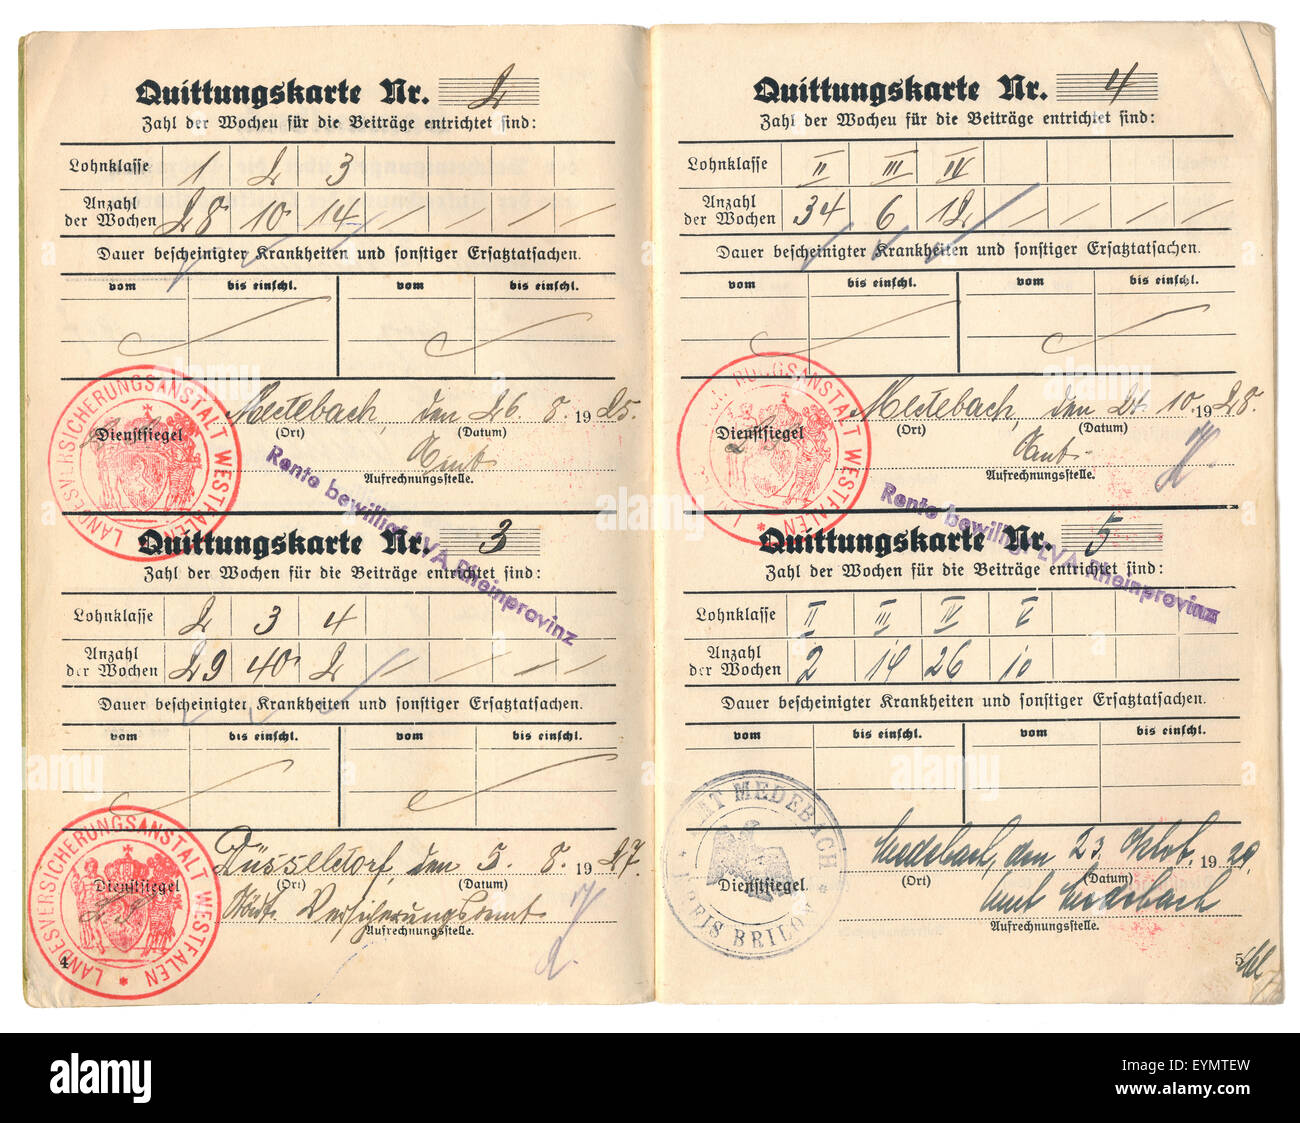 Quittungskarte Nr. 2
Zahl der Wochen für die Beiträge entrichtet sind:
Lohnklasse 1 2 3
Anzahl der Wochen 28 10 14
Dauer bescheinigter Krankheiten und sonstiger Ersatztatsachen.
vom bis einschl. vom bis einschl.
LANDESVERSICHERUNGSANSTALT WESTFALEN
Dienstsiegel
Medebach, den 26. 8. 1925.
(Ort) (Datum)
Amt
Aufrechnungsstelle.
Rente bewilligt LVA Rheinprovinz
Quittungskarte Nr. 3
Zahl der Wochen für die Beiträge entrichtet sind:
Lohnklasse 2 3 4
Anzahl der Wochen 29 40 2
Dauer bescheinigter Krankheiten und sonstiger Ersatztatsachen.
vom bis einschl. vom bis einschl.
LANDESVERSICHERUNGSANSTALT WESTFALEN
Dienstsiegel
Düsseldorf, den 5. 8. 1927.
(Ort) (Datum)
Städt. Versicherungsamt
Aufrechnungsstelle.
4
Quittungskarte Nr. 4
Zahl der Wochen für die Beiträge entrichtet sind:
Lohnklasse II III IV
Anzahl der Wochen 34 6 12
Dauer bescheinigter Krankheiten und sonstiger Ersatztatsachen.
vom bis einschl. vom bis einschl.
RUNGSANSTALT WESTFALEN
Dienstsiegel
Medebach, den 24. 10. 1928.
(Ort) (Datum)
Amt
Aufrechnungsstelle.
Rente bewilligt LVA Rheinprovinz
Quittungskarte Nr. 5
Zahl der Wochen für die Beiträge entrichtet sind:
Lohnklasse II III IV V
Anzahl der Wochen 2 14 26 10
Dauer bescheinigter Krankheiten und sonstiger Ersatztatsachen.
vom bis einschl. vom bis einschl.
AMT MEDEBACH
KREIS BRILON
Dienstsiegel
Medebach, den 23. Oktob. 1929.
(Ort) (Datum)
Amt Medebach
Aufrechnungsstelle.
5
alamy
Image ID: EYMTEW
www.alamy.com